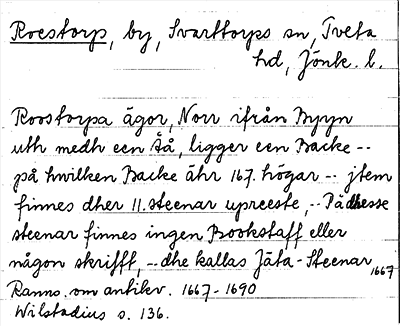 Roestorp, by, Svarttorps sn, Tveta
hd, Jönk. l.
Roostorpa ägor, Norr ifrån Byyn
uth medh een Åå, ligger een Backe --
på hwilken Backe ähr 167. högar -- jtem
finnes dher 11. steenar upreeste, -- Pådhesse
steenar finnes ingen Bookstaff eller
någon skrifft, -- dhe kallas Jäta-Steenar
1667
Ranns. om antikv. 1667-1690
Wilstadius s. 136.